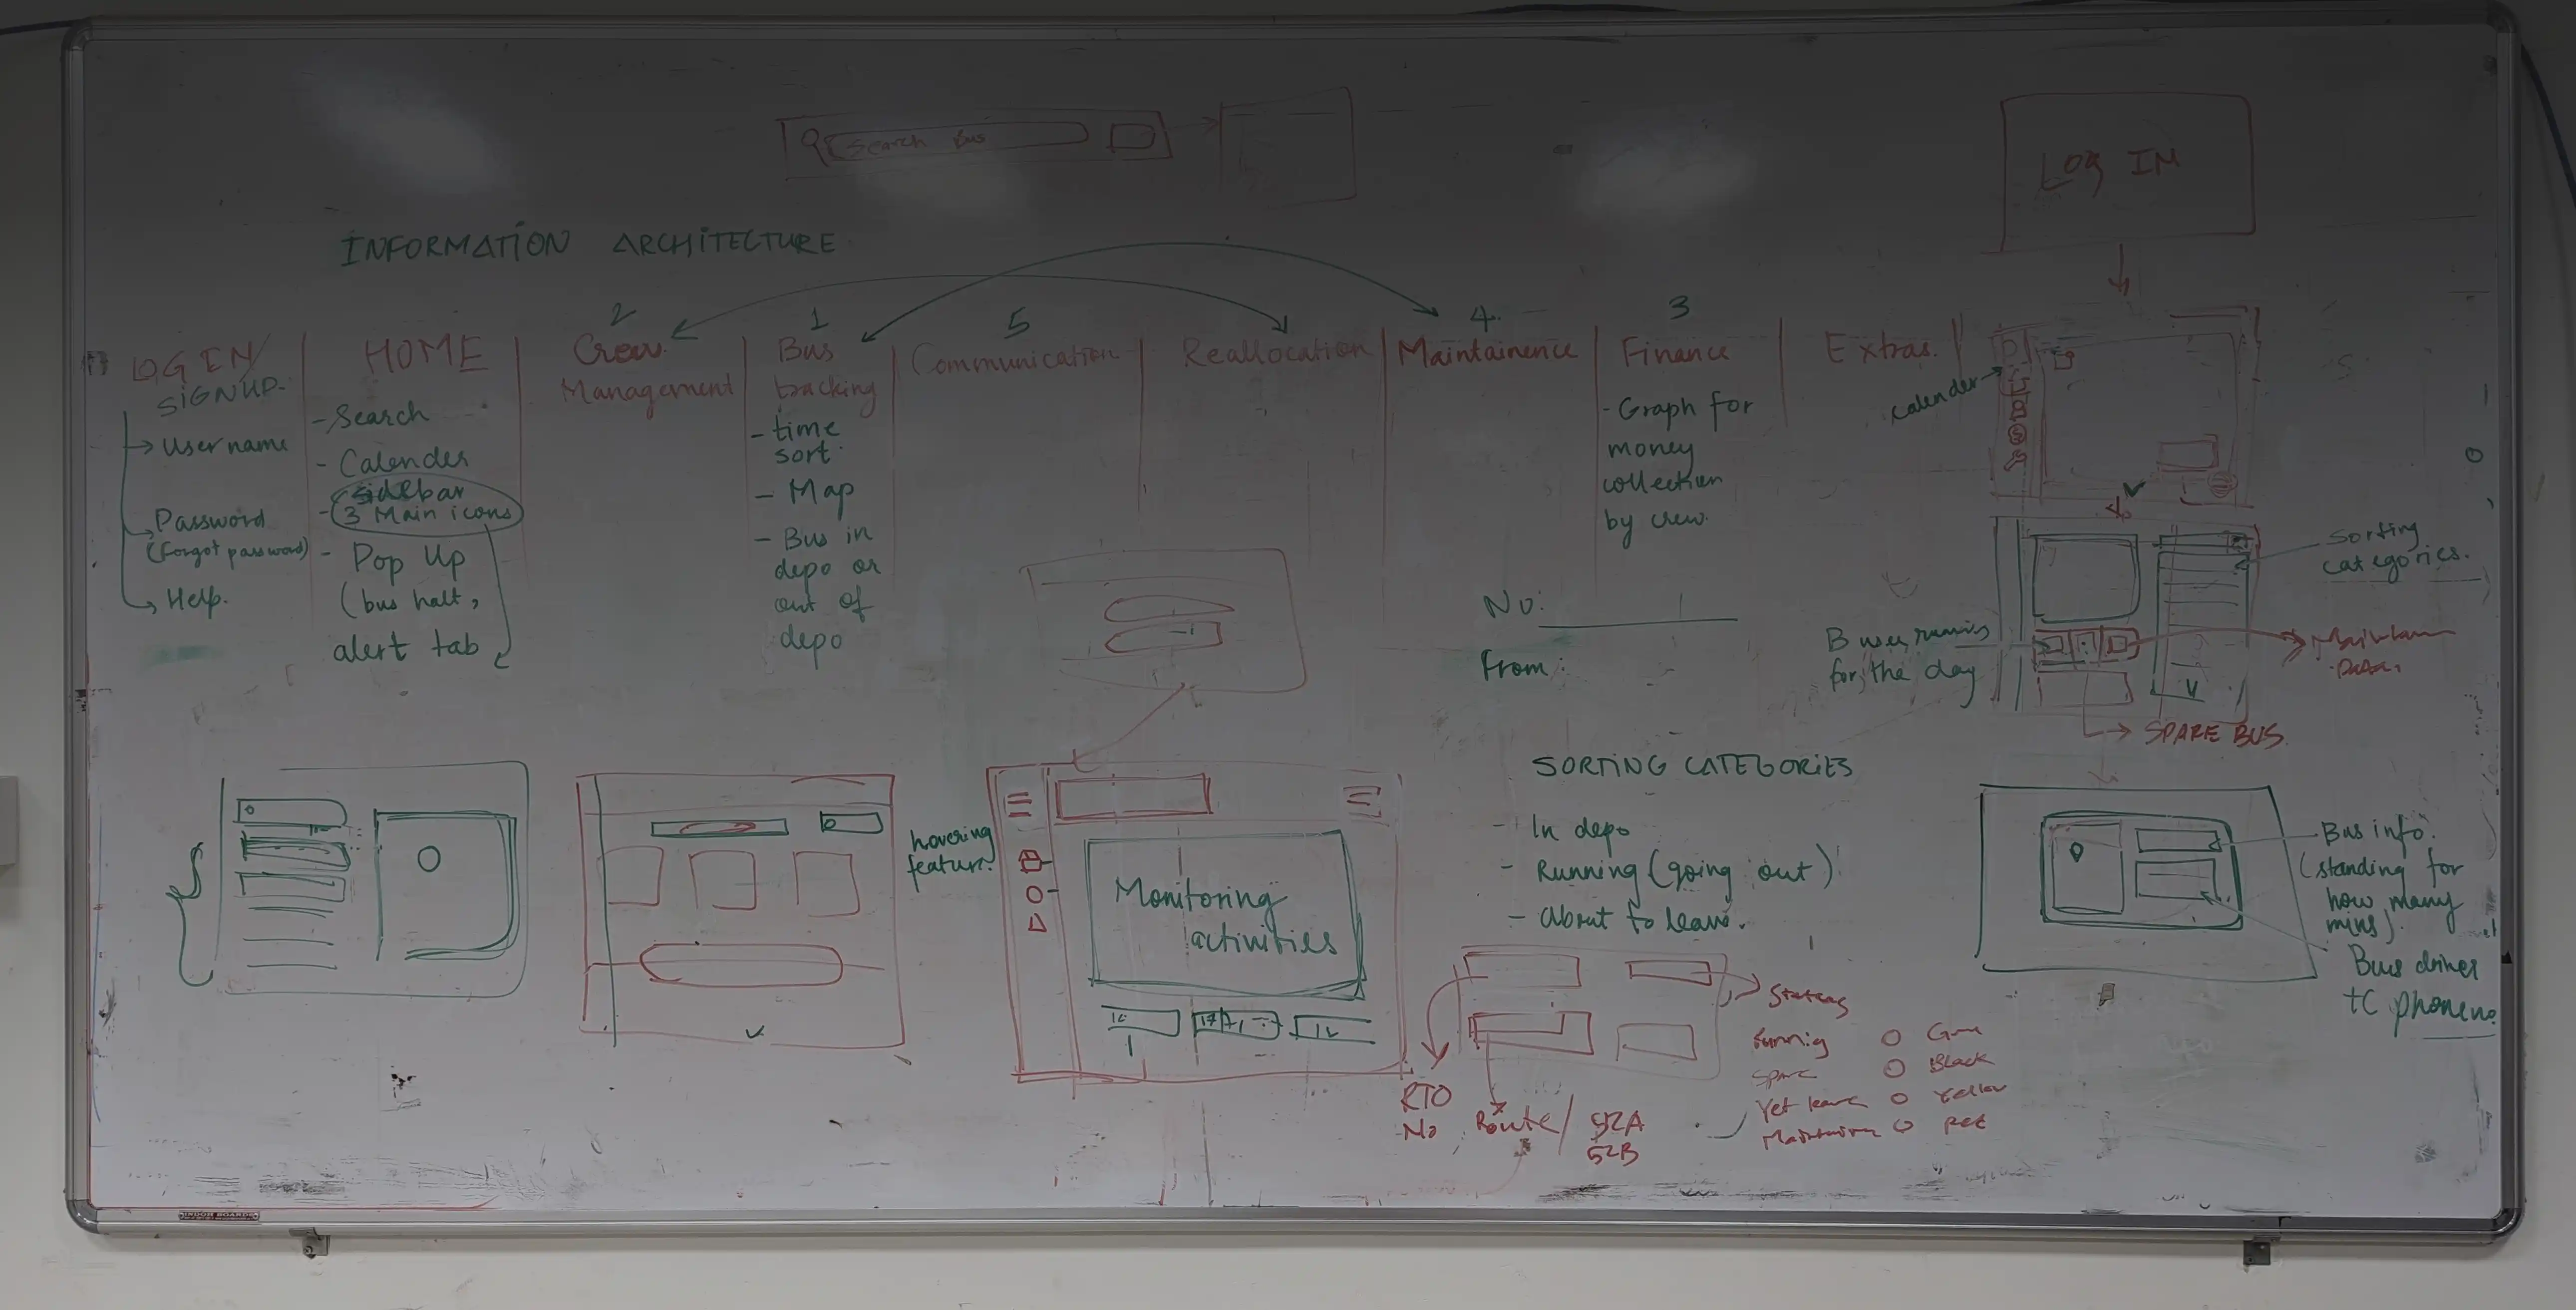 Search Bus
LOG IN
INFORMATION ARCHITECTURE
2
1
5
4.
3
LOG IN/
SIGNUP-
→ Username
Password
(Forgot password)
→ Help.
HOME
- Search
- Calender
Sidebar
- 3 Main icons
- Pop Up
(bus halt,
alert tab
Crew
Management
Bus
tracking
- time
sort.
- Map
- Bus in
depo or
out of
depo
Communication
Reallocation
Maintainence
Finance
- Graph for
money
collection
by crew.
Extras.
Calender
No:
From:
Sorting
categories.
Buses running
for the day
→ SPARE BUS
hovering
feature.
Monitoring
activities
SORTING CATEGORIES
- In depo
- Running (going out)
- About to leave.
Bus info.
(standing for
how many
mins).
Bus driver
tC phone no.
RTO
No
Route/
52A
52B
Spare
Black
Yet leave
Yellow
Red